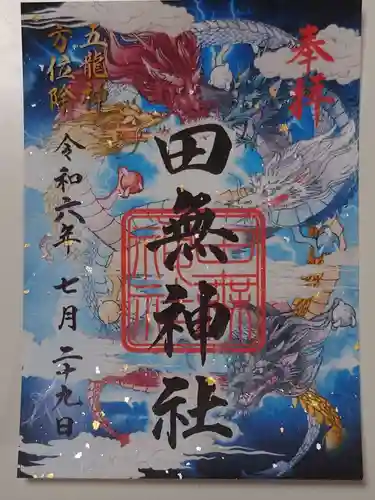 奉拝
田無神社
五龍神
方位除
令和六年 七月 二十九日
田無神社